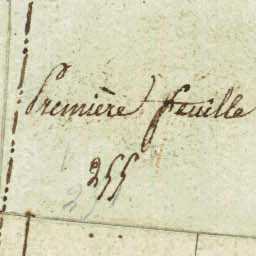 Première feuille
255